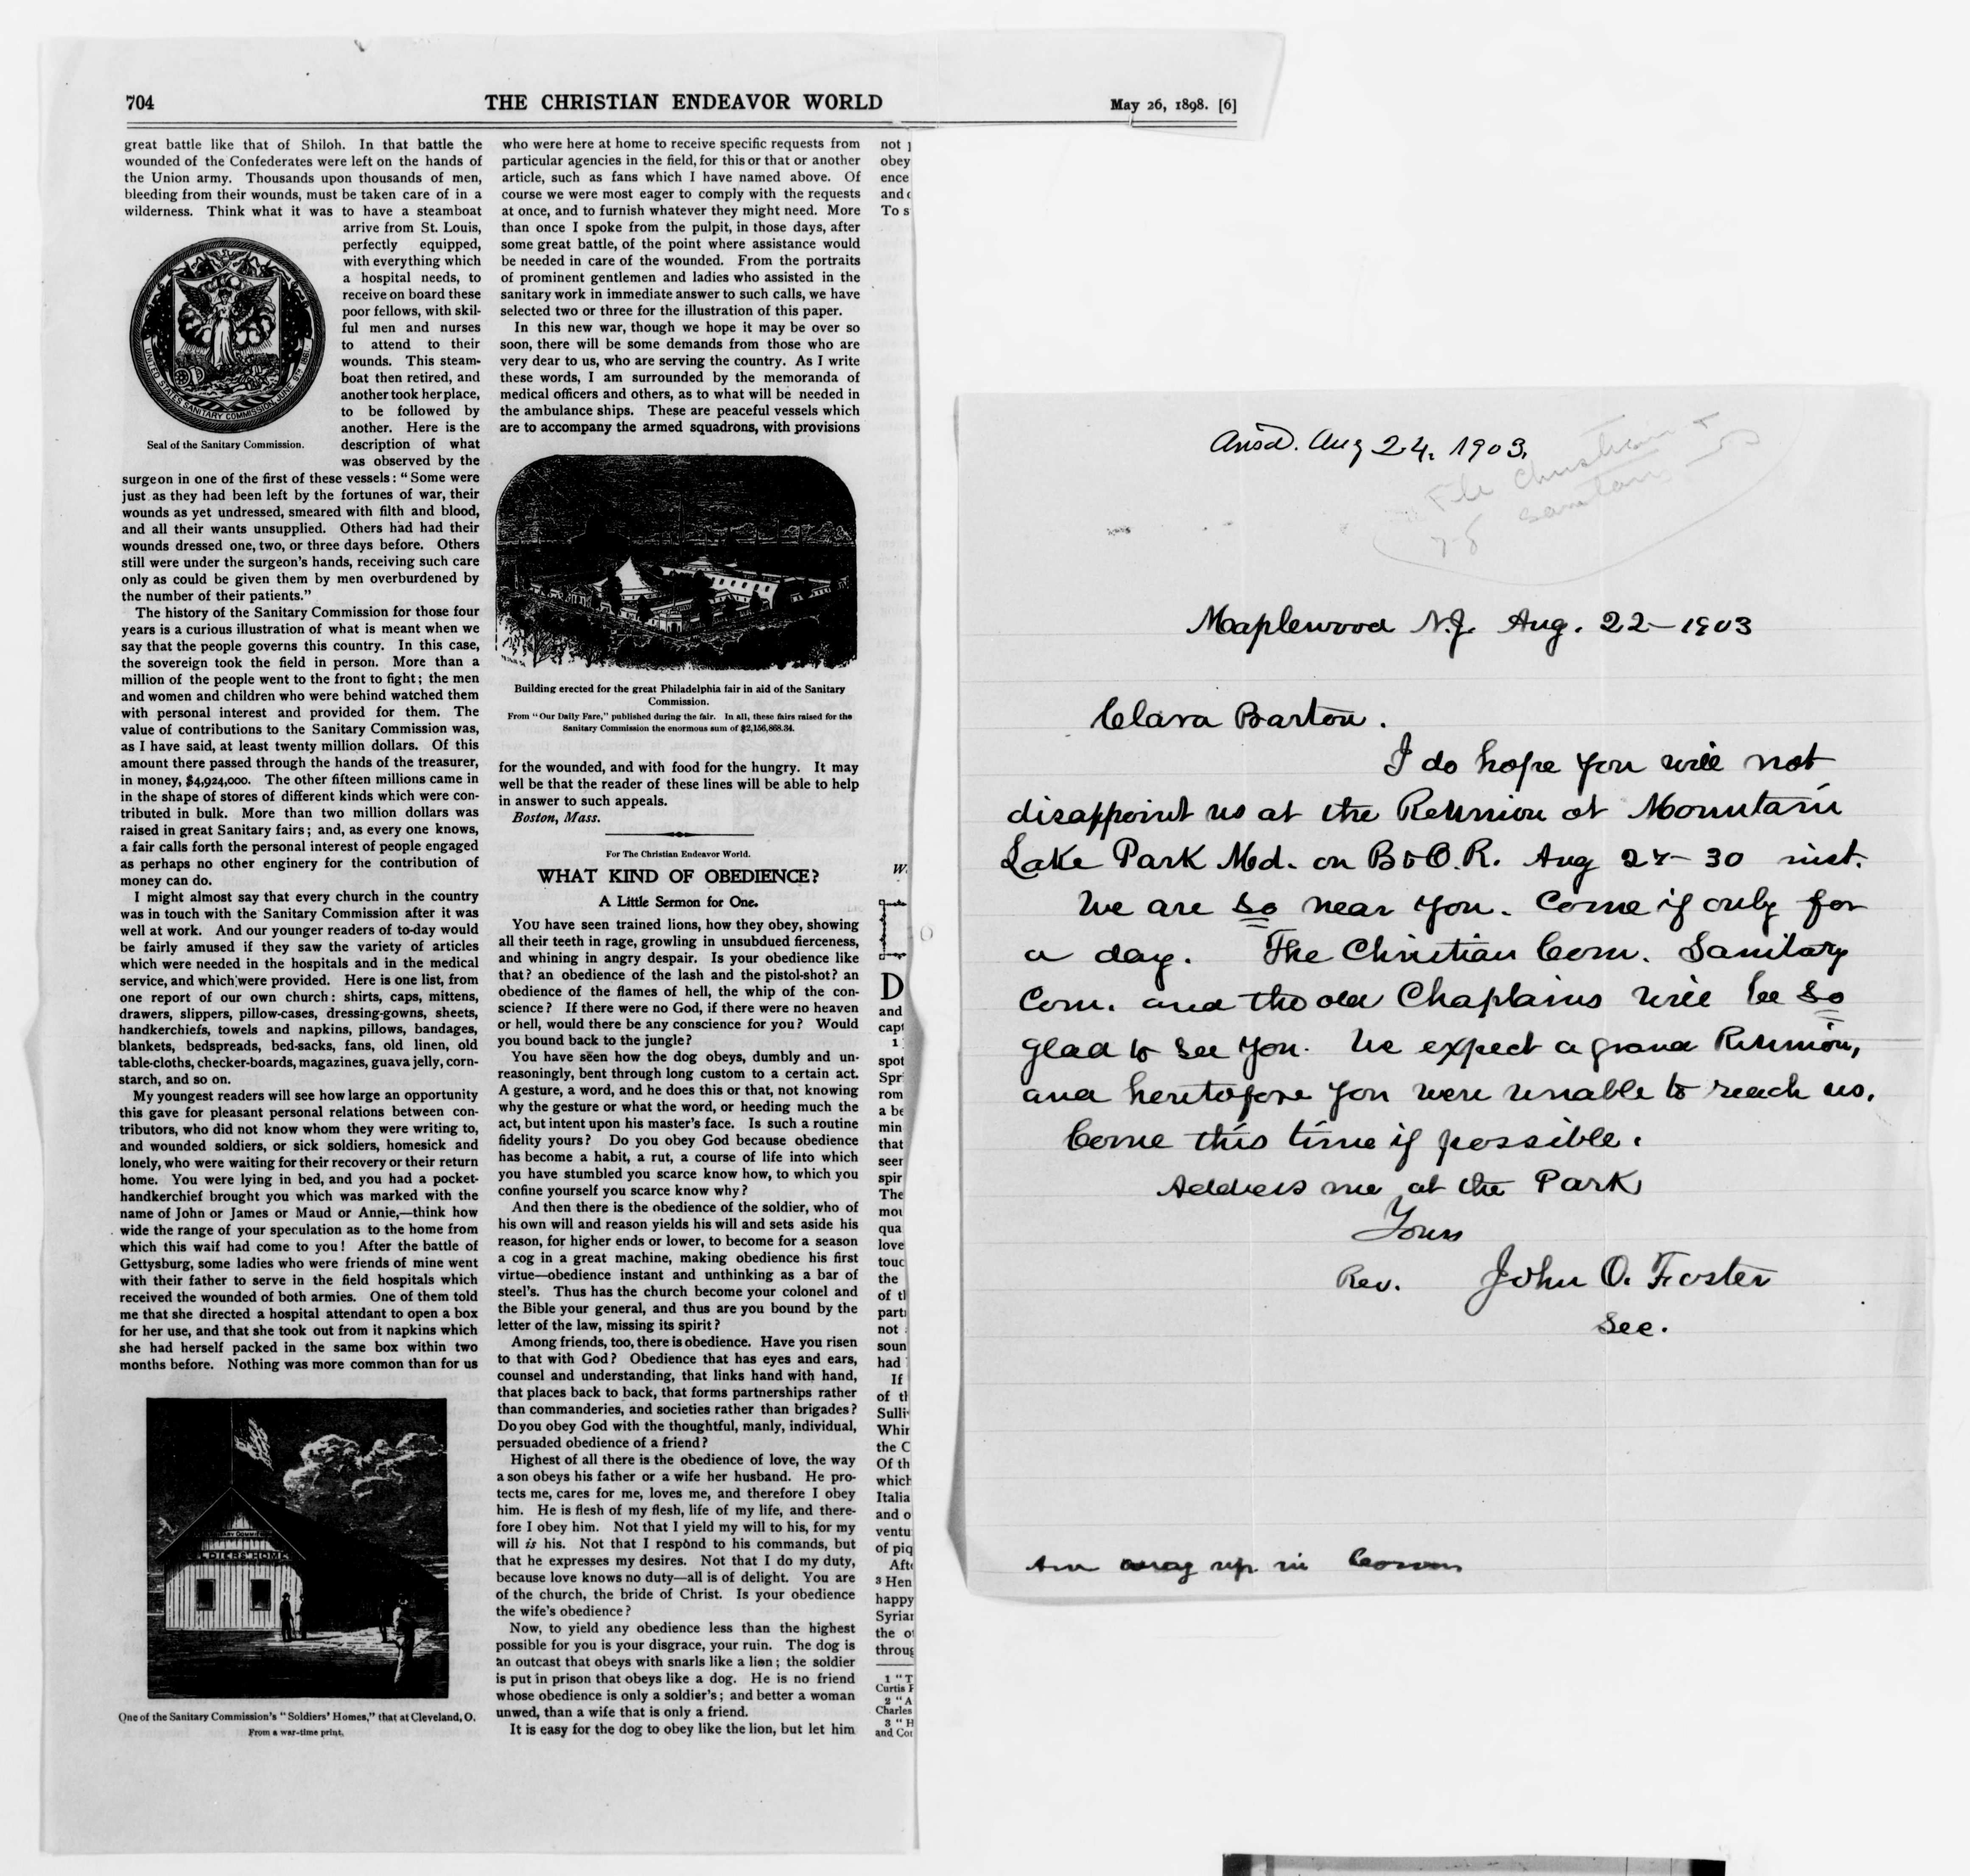 704
THE CHRISTIAN ENDEAVOR WORLD
May 26, 1898. [6]
great battle like that of Shiloh. In that battle the
wounded of the Confederates were left on the hands of
the Union army. Thousands upon thousands of men,
bleeding from their wounds, must be taken care of in a
wilderness. Think what it was to have a steamboat
arrive from St. Louis,
perfectly equipped,
with everything which
a hospital needs, to
receive on board these
poor fellows, with skil-
ful men and nurses
to attend to their
wounds. This steam-
boat then retired, and
another took her place,
to be followed by
another. Here is the
description of what
was observed by the
UNITED STATES SANITARY COMMISSION, JUNE 9TH 1861.
Seal of the Sanitary Commission.
surgeon in one of the first of these vessels: "Some were
just as they had been left by the fortunes of war, their
wounds as yet undressed, smeared with filth and blood,
and all their wants unsupplied. Others had had their
wounds dressed one, two, or three days before. Others
still were under the surgeon's hands, receiving such care
only as could be given them by men overburdened by
the number of their patients."
The history of the Sanitary Commission for those four
years is a curious illustration of what is meant when we
say that the people governs this country. In this case,
the sovereign took the field in person. More than a
million of the people went to the front to fight; the men
and women and children who were behind watched them
with personal interest and provided for them. The
value of contributions to the Sanitary Commission was,
as I have said, at least twenty million dollars. Of this
amount there passed through the hands of the treasurer,
in money, $4,924,000. The other fifteen millions came in
in the shape of stores of different kinds which were con-
tributed in bulk. More than two million dollars was
raised in great Sanitary fairs; and, as every one knows,
a fair calls forth the personal interest of people engaged
as perhaps no other enginery for the contribution of
money can do.
I might almost say that every church in the country
was in touch with the Sanitary Commission after it was
well at work. And our younger readers of to-day would
be fairly amused if they saw the variety of articles
which were needed in the hospitals and in the medical
service, and which were provided. Here is one list, from
one report of our own church: shirts, caps, mittens,
drawers, slippers, pillow-cases, dressing-gowns, sheets,
handkerchiefs, towels and napkins, pillows, bandages,
blankets, bedspreads, bed-sacks, fans, old linen, old
table-cloths, checker-boards, magazines, guava jelly, corn-
starch, and so on.
My youngest readers will see how large an opportunity
this gave for pleasant personal relations between con-
tributors, who did not know whom they were writing to,
and wounded soldiers, or sick soldiers, homesick and
lonely, who were waiting for their recovery or their return
home. You were lying in bed, and you had a pocket-
handkerchief brought you which was marked with the
name of John or James or Maud or Annie,—think how
wide the range of your speculation as to the home from
which this waif had come to you! After the battle of
Gettysburg, some ladies who were friends of mine went
with their father to serve in the field hospitals which
received the wounded of both armies. One of them told
me that she directed a hospital attendant to open a box
for her use, and that she took out from it napkins which
she had herself packed in the same box within two
months before. Nothing was more common than for us
SOLDIERS' HOME
One of the Sanitary Commission's "Soldiers' Homes," that at Cleveland, O.
From a war-time print.
who were here at home to receive specific requests from
particular agencies in the field, for this or that or another
article, such as fans which I have named above. Of
course we were most eager to comply with the requests
at once, and to furnish whatever they might need. More
than once I spoke from the pulpit, in those days, after
some great battle, of the point where assistance would
be needed in care of the wounded. From the portraits
of prominent gentlemen and ladies who assisted in the
sanitary work in immediate answer to such calls, we have
selected two or three for the illustration of this paper.
In this new war, though we hope it may be over so
soon, there will be some demands from those who are
very dear to us, who are serving the country. As I write
these words, I am surrounded by the memoranda of
medical officers and others, as to what will be needed in
the ambulance ships. These are peaceful vessels which
are to accompany the armed squadrons, with provisions
Building erected for the great Philadelphia fair in aid of the Sanitary
Commission.
From "Our Daily Fare," published during the fair. In all, these fairs raised for the
Sanitary Commission the enormous sum of $2,156,868.34.
for the wounded, and with food for the hungry. It may
well be that the reader of these lines will be able to help
in answer to such appeals.
Boston, Mass.
For The Christian Endeavor World.
WHAT KIND OF OBEDIENCE?
A Little Sermon for One.
You have seen trained lions, how they obey, showing
all their teeth in rage, growling in unsubdued fierceness,
and whining in angry despair. Is your obedience like
that? an obedience of the lash and the pistol-shot? an
obedience of the flames of hell, the whip of the con-
science? If there were no God, if there were no heaven
or hell, would there be any conscience for you? Would
you bound back to the jungle?
You have seen how the dog obeys, dumbly and un-
reasoningly, bent through long custom to a certain act.
A gesture, a word, and he does this or that, not knowing
why the gesture or what the word, or heeding much the
act, but intent upon his master's face. Is such a routine
fidelity yours? Do you obey God because obedience
has become a habit, a rut, a course of life into which
you have stumbled you scarce know how, to which you
confine yourself you scarce know why?
And then there is the obedience of the soldier, who of
his own will and reason yields his will and sets aside his
reason, for higher ends or lower, to become for a season
a cog in a great machine, making obedience his first
virtue—obedience instant and unthinking as a bar of
steel's. Thus has the church become your colonel and
the Bible your general, and thus are you bound by the
letter of the law, missing its spirit?
Among friends, too, there is obedience. Have you risen
to that with God? Obedience that has eyes and ears,
counsel and understanding, that links hand with hand,
that places back to back, that forms partnerships rather
than commanderies, and societies rather than brigades?
Do you obey God with the thoughtful, manly, individual,
persuaded obedience of a friend?
Highest of all there is the obedience of love, the way
a son obeys his father or a wife her husband. He pro-
tects me, cares for me, loves me, and therefore I obey
him. He is flesh of my flesh, life of my life, and there-
fore I obey him. Not that I yield my will to his, for my
will is his. Not that I respond to his commands, but
that he expresses my desires. Not that I do my duty,
because love knows no duty—all is of delight. You are
of the church, the bride of Christ. Is your obedience
the wife's obedience?
Now, to yield any obedience less than the highest
possible for you is your disgrace, your ruin. The dog is
an outcast that obeys with snarls like a lion; the soldier
is put in prison that obeys like a dog. He is no friend
whose obedience is only a soldier's; and better a woman
unwed, than a wife that is only a friend.
It is easy for the dog to obey like the lion, but let him
not
obey
ence
and
To s
W.
D
and
capt
1
spot
Spr
rom
a be
min
that
seer
spir
The
mou
qua
love
touc
the
of tl
parti
not
soun
had
If
of th
Sulli
Whir
the C
Of th
which
Italia
and o
ventu
of piq
Afte
3 Hen
happy
Syriar
the o
throug
1 "T
Curtis F
2 "A
Charles
3 "H
and Cor
Ansd. Aug 24, 1903.
File Christian +
Sanitary
Maplewood N.J. Aug. 22-1903
Clara Barton.
I do hope you will not
disappoint us at the Reunion at Mountain
Lake Park Md. on B&O.R. Aug 27-30 inst.
We are so near you. Come if only for
a day. The Christian Com. Sanitary
Com. and the old Chaplains will be so
glad to see you. We expect a grand Reunion,
and heretofore you were unable to reach us.
Come this time if possible.
Address me at the Park
Yours
Rev. John O. Foster
Sec.
Am away up in